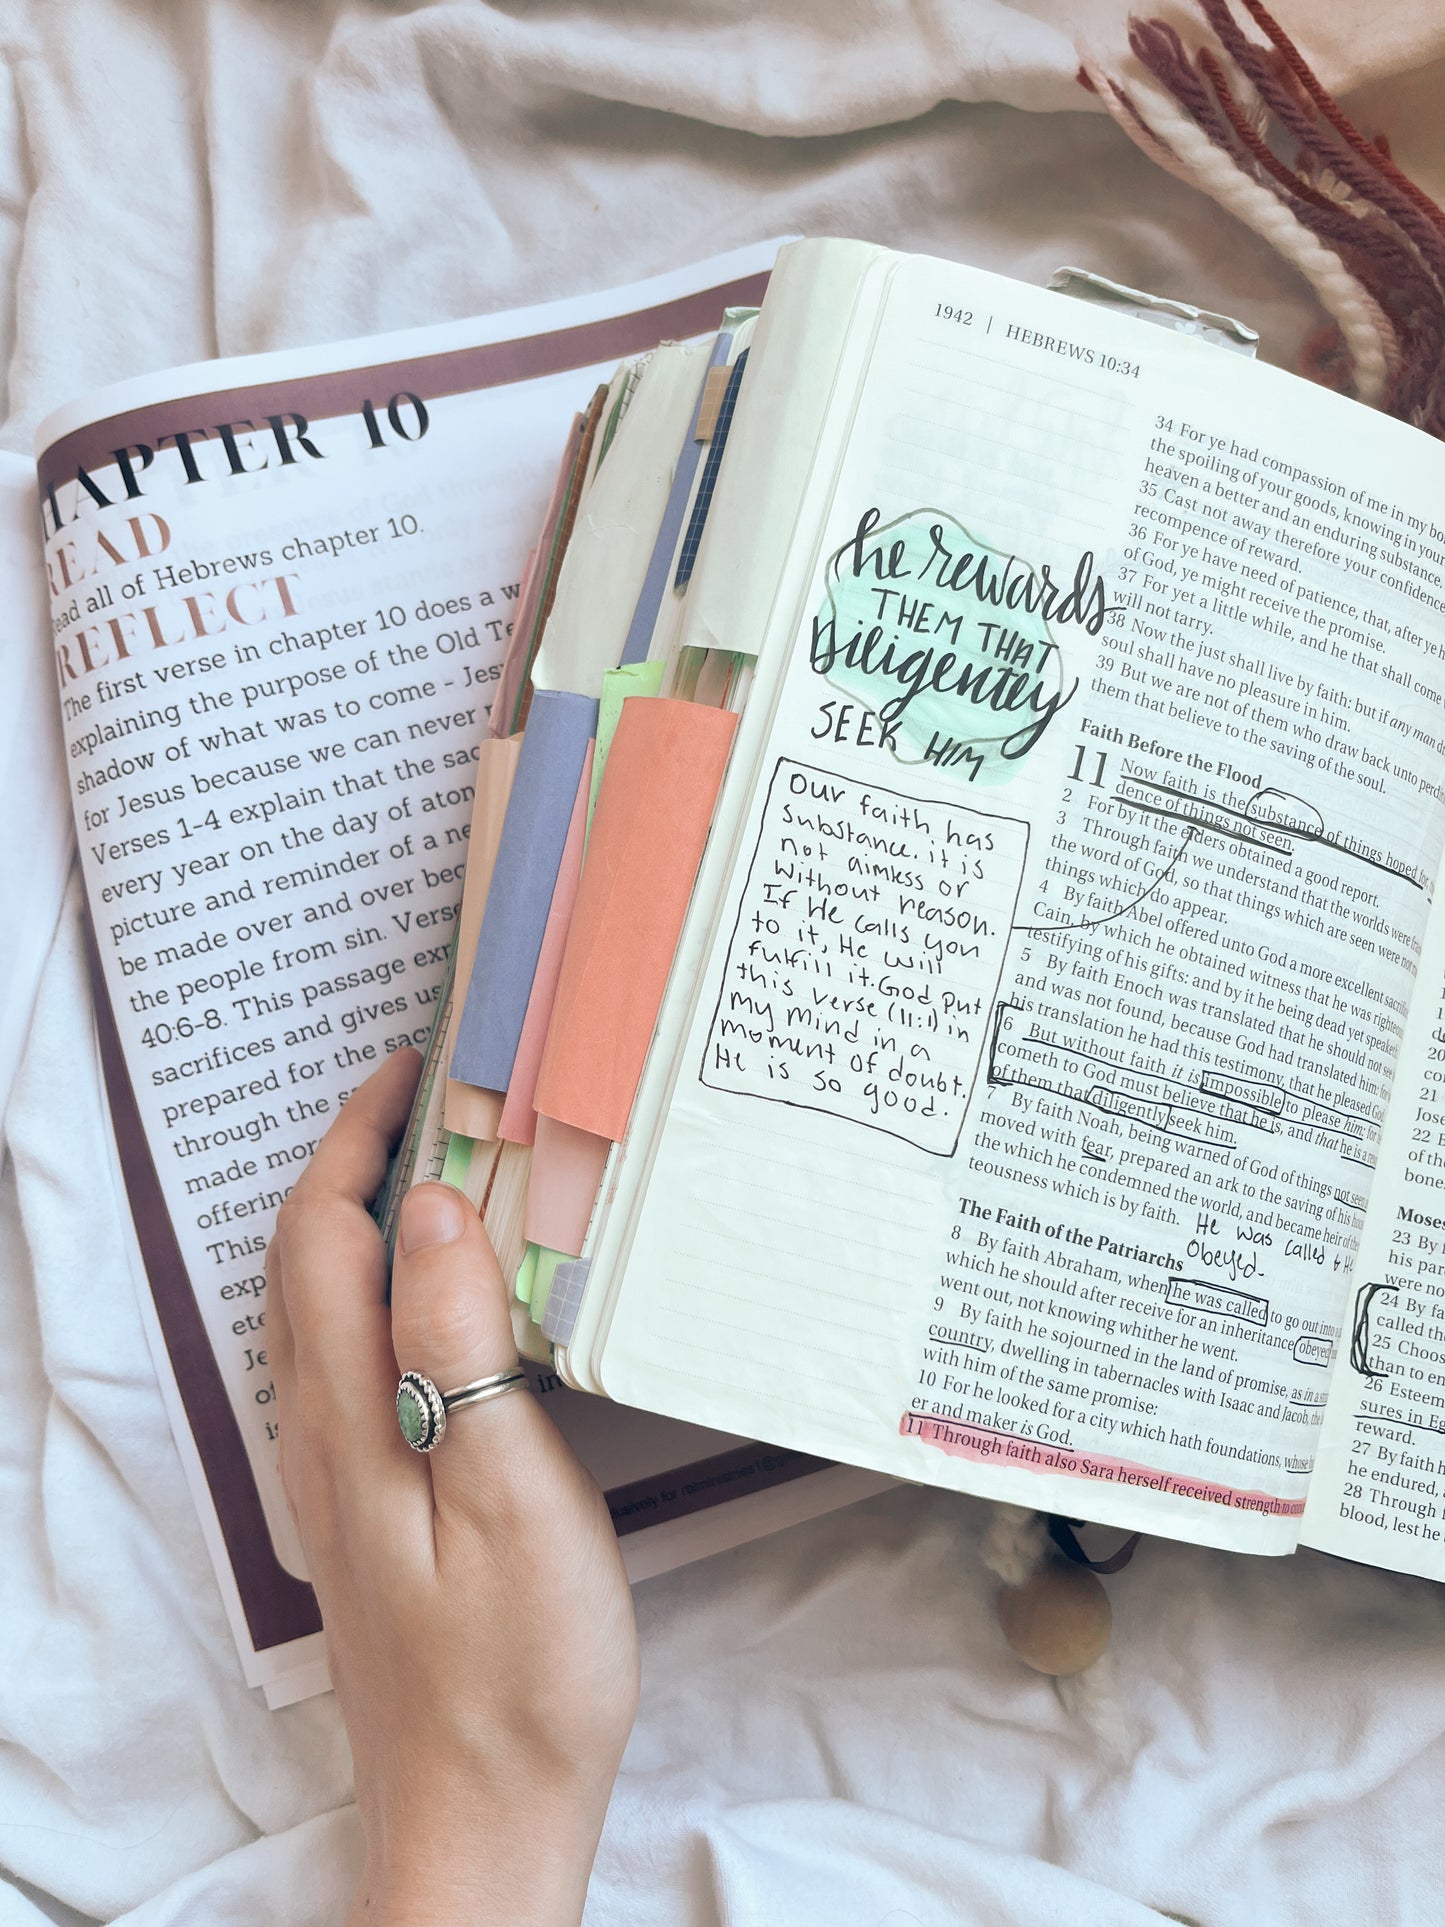 HAPTER 10
READ
ead all of Hebrews chapter 10.
REFLECT
The first verse in chapter 10 does a w
explaining the purpose of the Old Te
shadow of what was to come - Jesu
for Jesus because we can never
Verses 1-4 explain that the sac
every year on the day of aton
picture and reminder of a ne
be made over and over bec
the people from sin. Verse
40:6-8. This passage exp
sacrifices and gives us
prepared for the sac
through the s
made mor
offering
This
exp
ete
Je
of
is
in
1942 | HEBREWS 10:34
he rewards
THEM THAT
Diligentley
SEEK HIM
Our faith has
substance. it is
not aimless or
without reason.
If He calls you
to it, He will
fulfill it. God put
this verse (11:1) in
my mind in a
moment of doubt.
He is so good.
34 For ye had compassion of me in my bo
the spoiling of your goods, knowing in your
heaven a better and an enduring substance.
35 Cast not away therefore your confidence
recompence of reward.
36 For ye have need of patience, that, after ye h
of God, ye might receive the promise.
37 For yet a little while, and he that shall come
will not tarry.
38 Now the just shall live by faith: but if any man d
soul shall have no pleasure in him.
39 But we are not of them who draw back unto perdi
them that believe to the saving of the soul.
Faith Before the Flood
11 Now faith is the substance of things hoped for,
dence of things not seen.
2 For by it the elders obtained a good report.
3 Through faith we understand that the worlds were fra
the word of God, so that things which are seen were not
things which do appear.
4 By faith Abel offered unto God a more excellent sacrifi
Cain, by which he obtained witness that he was righteo
testifying of his gifts: and by it he being dead yet speaketh
5 By faith Enoch was translated that he should not see
and was not found, because God had translated him: for
his translation he had this testimony, that he pleased God
6 But without faith it is impossible to please him: for
cometh to God must believe that he is, and that he is a re
of them that diligently seek him.
7 By faith Noah, being warned of God of things not seen
moved with fear, prepared an ark to the saving of his hou
the which he condemned the world, and became heir of the
teousness which is by faith.
He was called & He
Obeyed.
The Faith of the Patriarchs
8 By faith Abraham, when he was called to go out into a
which he should after receive for an inheritance, obeyed
went out, not knowing whither he went.
9 By faith he sojourned in the land of promise, as in a
country, dwelling in tabernacles with Isaac and Jacob, the
with him of the same promise:
10 For he looked for a city which hath foundations, whose
er and maker is God.
11 Through faith also Sara herself received strength to conc
20
21
Jose
22 B
of the
bone
Moses
23 By f
his par
were no
24 By fa
called the
25 Choos
than to en
26 Esteem
sures in Eg
reward.
27 By faith h
he endured,
28 Through f
blood, lest he